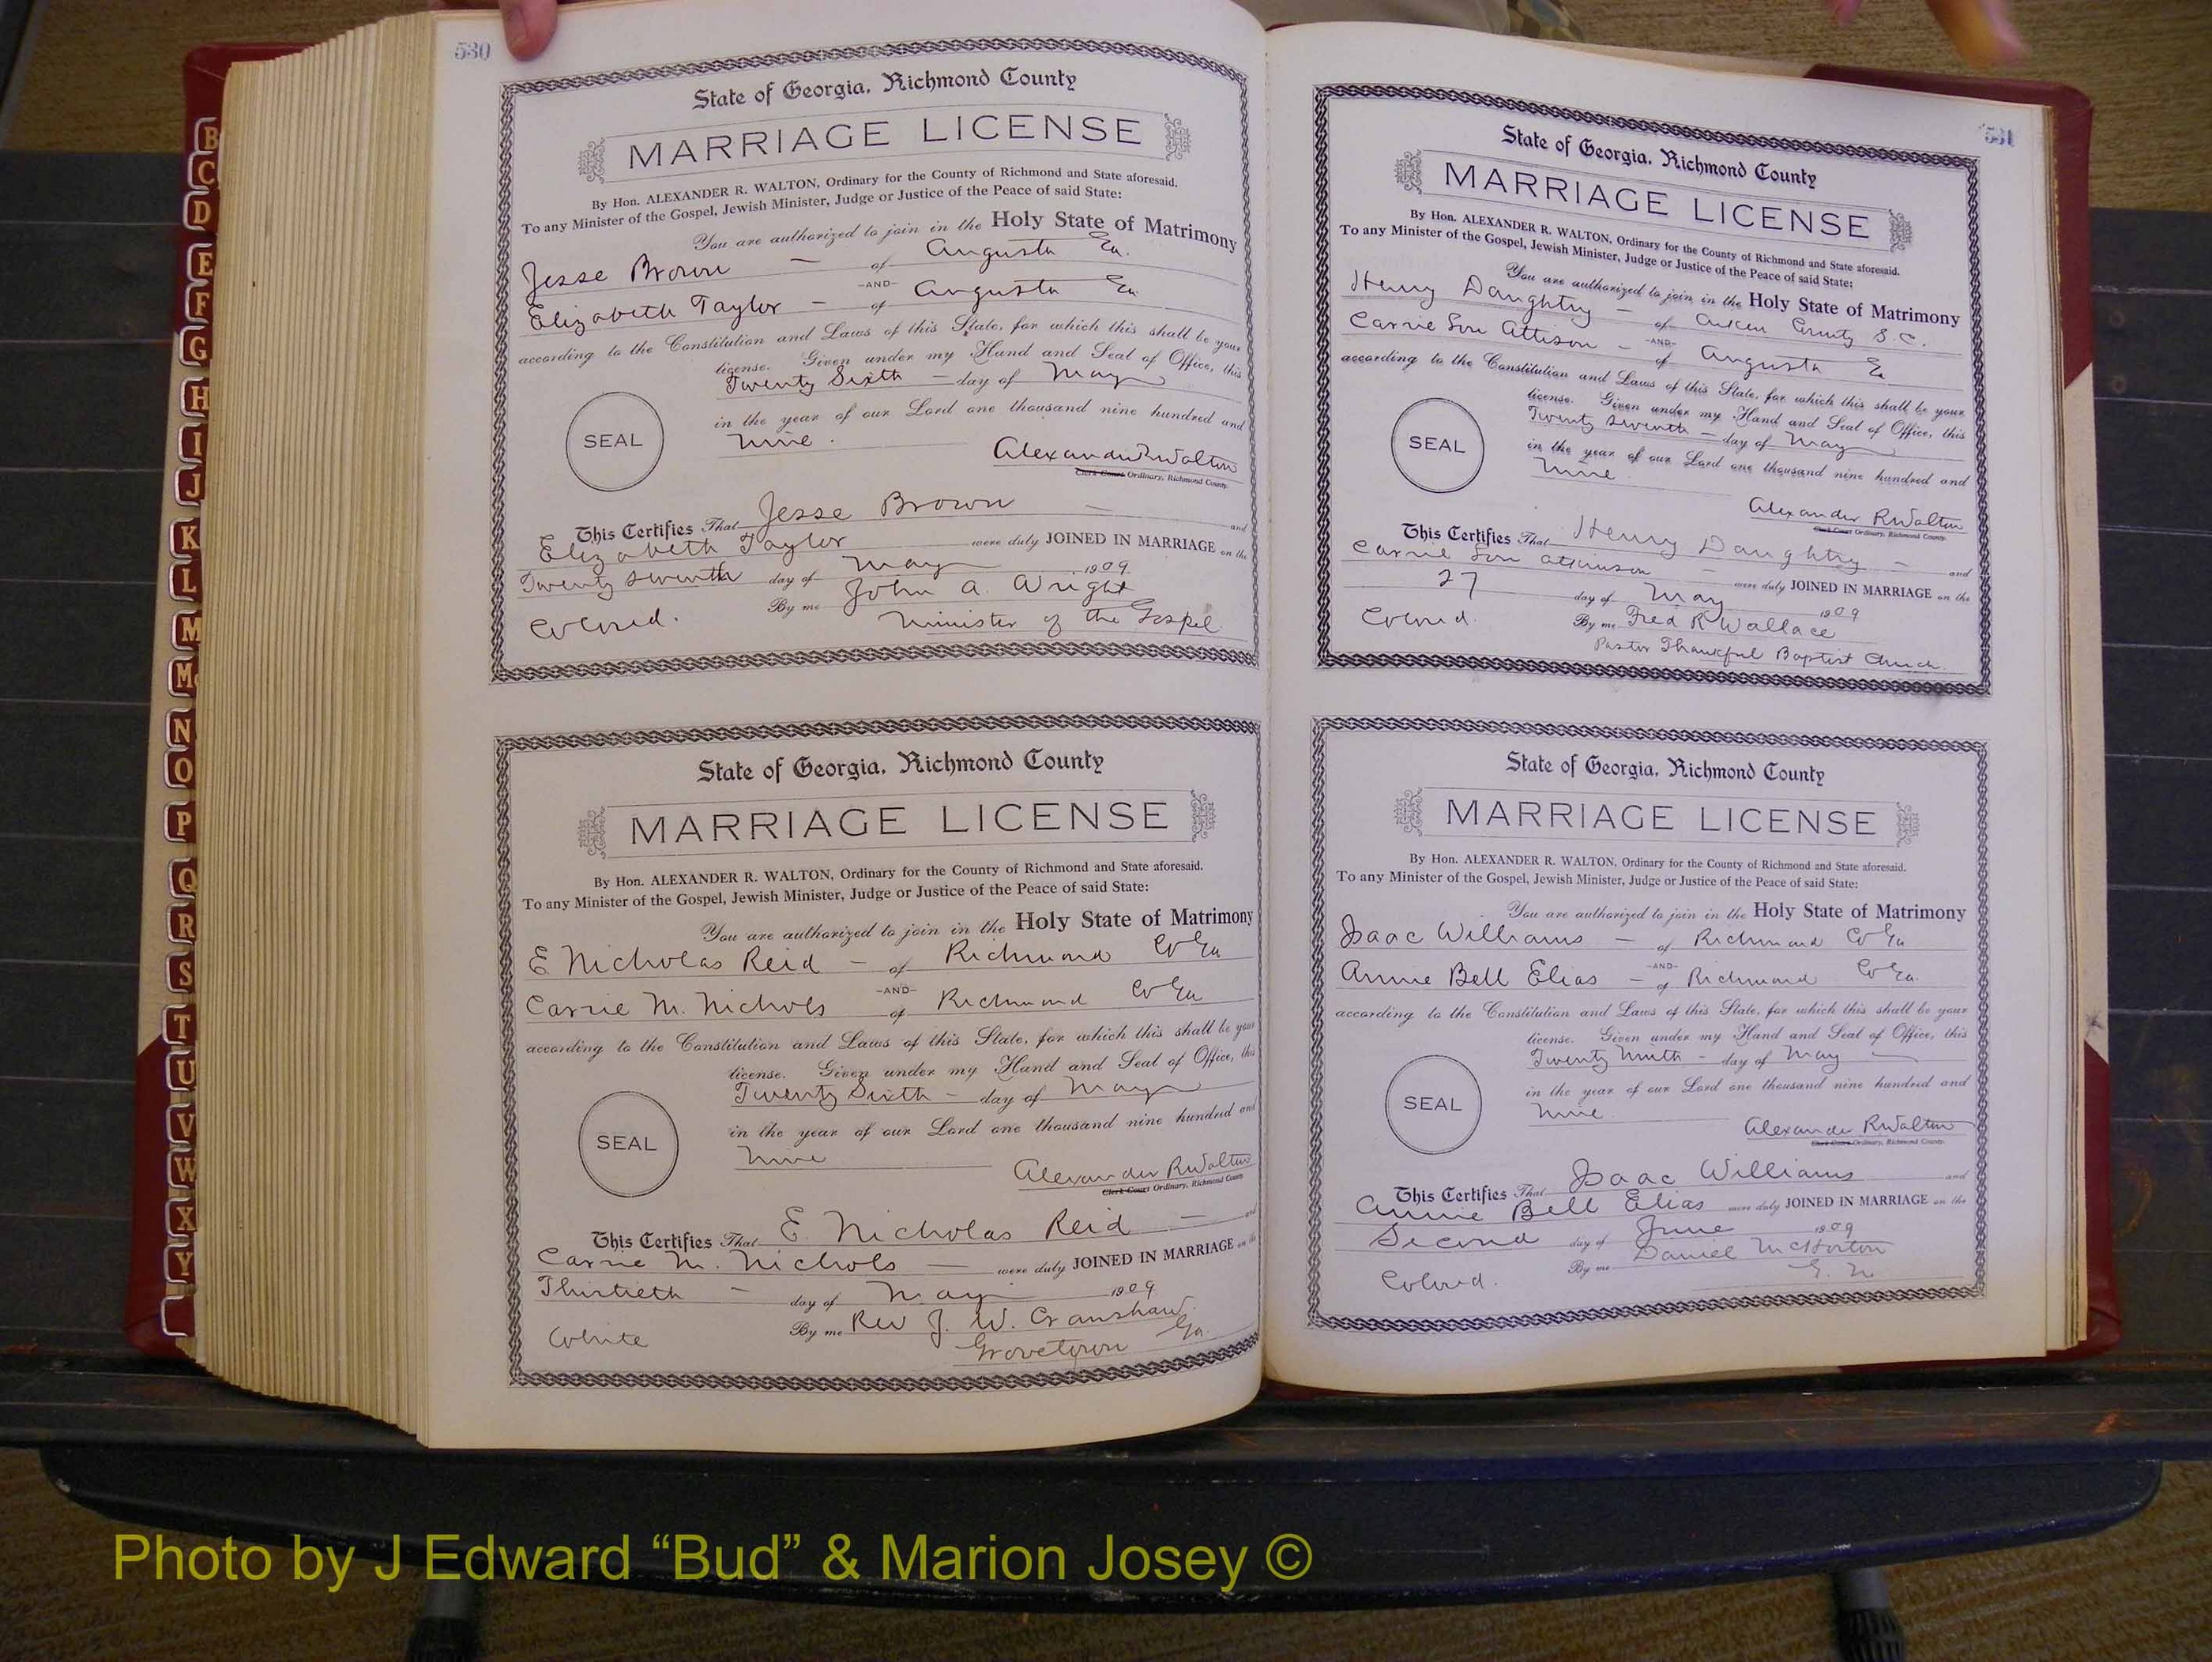 530
State of Georgia, Richmond County
MARRIAGE LICENSE
By Hon. ALEXANDER R. WALTON, Ordinary for the County of Richmond and State aforesaid.
To any Minister of the Gospel, Jewish Minister, Judge or Justice of the Peace of said State:
You are authorized to join in the Holy State of Matrimony
Jesse Brown — of Augusta Ga.
-AND-
Elizabeth Taylor — of Augusta Ga
according to the Constitution and Laws of this State, for which this shall be your
license. Given under my Hand and Seal of Office, this
Twenty Sixth — day of May
in the year of our Lord one thousand nine hundred and
SEAL
nine.
Alexander R Walton
Clerk Court Ordinary, Richmond County.
This Certifies That Jesse Brown — and
Elizabeth Taylor were duly JOINED IN MARRIAGE on the
Twenty Seventh day of May 1909
By me John A. Wright
Colored. Minister of the Gospel
State of Georgia, Richmond County
MARRIAGE LICENSE
By Hon. ALEXANDER R. WALTON, Ordinary for the County of Richmond and State aforesaid.
To any Minister of the Gospel, Jewish Minister, Judge or Justice of the Peace of said State:
You are authorized to join in the Holy State of Matrimony
E Nicholas Reid — of Richmond Co Ga
-AND-
Carrie M. Nichols of Richmond Co Ga
according to the Constitution and Laws of this State, for which this shall be your
license. Given under my Hand and Seal of Office, this
Twenty Sixth — day of May
in the year of our Lord one thousand nine hundred and
SEAL
nine
Alexander R Walton
Clerk Court Ordinary, Richmond County
This Certifies That E. Nicholas Reid — and
Carrie M. Nichols — were duly JOINED IN MARRIAGE on the
Thirtieth — day of May 1909
By me Rev J. W. Cranshaw
White Grovetown Ga.
531
State of Georgia, Richmond County
MARRIAGE LICENSE
By Hon. ALEXANDER R. WALTON, Ordinary for the County of Richmond and State aforesaid.
To any Minister of the Gospel, Jewish Minister, Judge or Justice of the Peace of said State:
You are authorized to join in the Holy State of Matrimony
Henry Daughtry — of Aiken County S.C.
-AND-
Carrie Lou Attison — of Augusta Ga
according to the Constitution and Laws of this State, for which this shall be your
license. Given under my Hand and Seal of Office, this
Twenty Seventh — day of May
in the year of our Lord one thousand nine hundred and
SEAL
nine.
Alexander R Walton
Clerk Court Ordinary, Richmond County.
This Certifies That Henry Daughtry — and
Carrie Lou Atkinson — were duly JOINED IN MARRIAGE on the
27 day of May 1909
Colored. By me Fred R Wallace
Pastor Thankful Baptist Church.
State of Georgia, Richmond County
MARRIAGE LICENSE
By Hon. ALEXANDER R. WALTON, Ordinary for the County of Richmond and State aforesaid.
To any Minister of the Gospel, Jewish Minister, Judge or Justice of the Peace of said State:
You are authorized to join in the Holy State of Matrimony
Isaac Williams — of Richmond Co Ga
-AND-
Annie Bell Elias — of Richmond Co Ga.
according to the Constitution and Laws of this State, for which this shall be your
license. Given under my Hand and Seal of Office, this
Twenty Ninth — day of May
in the year of our Lord one thousand nine hundred and
SEAL
nine
Alexander R Walton
Clerk Court Ordinary, Richmond County.
This Certifies That Isaac Williams and
Annie Bell Elias were duly JOINED IN MARRIAGE on the
Second day of June 1909
By me Daniel McHorton
Colored.
B
C
D
E
F
G
H
I
J
K
L
M
Mc
N
O
P
Q
R
S
T
U
V
W
X
Y
Photo by J Edward “Bud” & Marion Josey ©